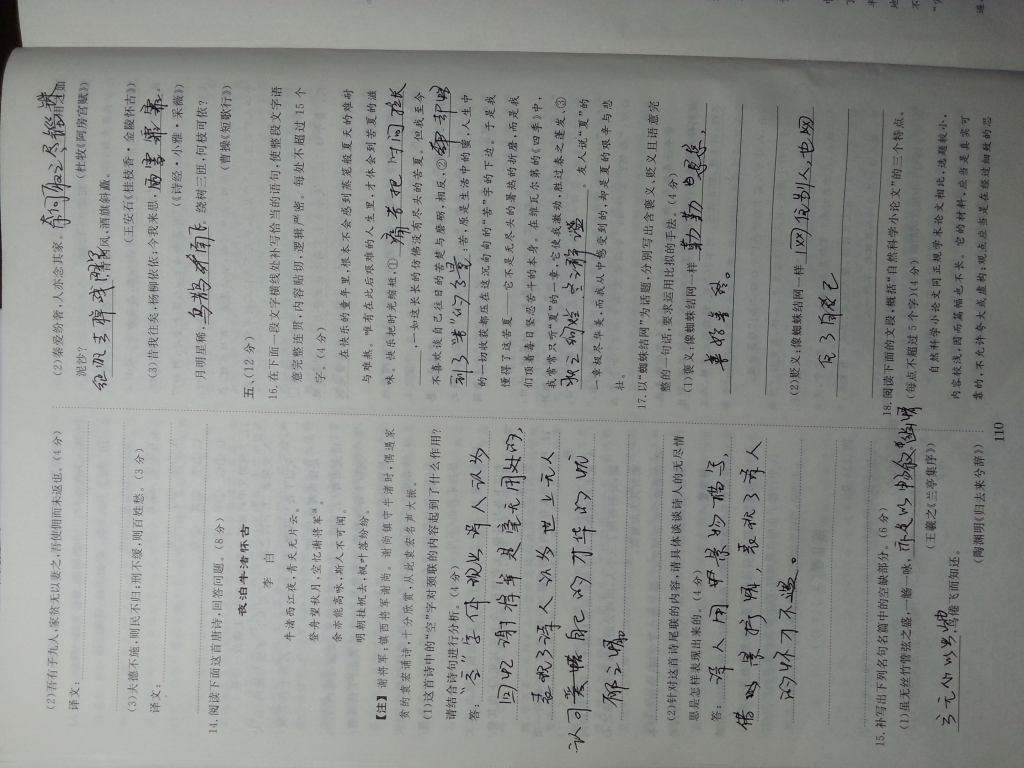 (2)吾有子九人,家贫无以妻之,吾使佣而未返也。(4分)
译文:
(3)夫德不施,则民不归;刑不缓,则百姓愁。(3分)
译文:
14.阅读下面这首唐诗,回答问题。(8分)
夜泊牛渚怀古
李 白
牛渚西江夜,青天无片云。
登舟望秋月,空忆谢将军。
余亦能高咏,斯人不可闻。
明朝挂帆去,枫叶落纷纷。
【注】谢将军:镇西将军谢尚。谢尚镇守牛渚时,偶遇家
贫的袁宏诵诗,十分欣赏,从此袁宏名声大振。
(1)这首诗中的“空”字对颈联的内容起到了什么作用?
请结合诗句进行分析。(4分)
答: “空”字体现出诗人认为
回忆谢将军是毫无用处的,
表现了诗人认为世上无人
认可 自己的才华的忧
郁之情
(2)针对这首诗尾联的内容,请具体谈谈诗人的无尽情
思是怎样表现出来的。(4分)
答: 诗人用 景物描写,
借 景抒情,表现了诗人
的怀才不遇。
15.补写出下列名句名篇中的空缺部分。(6分)
(1)虽无丝竹管弦之盛,一觞一咏,亦足以畅叙幽情
(王羲之《兰亭集序》)
云无心以出岫,鸟倦飞而知还。
(陶渊明《归去来兮辞》)
(2)秦爱纷奢,人亦念其家。奈何取之尽锱铢,用之如
泥沙?
(杜牧《阿房宫赋》)
征帆去棹残阳里,背西风,酒旗斜矗。
(王安石《桂枝香·金陵怀古》)
(3)昔我往矣,杨柳依依;今我来思,雨雪霏霏。
(《诗经·小雅·采薇》)
月明星稀,乌鹊南飞。绕树三匝,何枝可依?
(曹操《短歌行》)
五、(12分)
16.在下面一段文字横线处补写恰当的语句,使整段文字语
意完整连贯,内容贴切,逻辑严密。每处不超过15个
字。(4分)
在快乐的童年里,根本不会感到蒸笼般夏天的难耐
与难熬。唯有在此后艰难的人生里,才体会到苦夏的滋
味。快乐把时光缩短,① 痛苦把时间拉长
,一如这长长的仿佛没有尽头的苦夏。但我至今
不喜欢谈自己往日的苦楚与磨砺,相反,②
。苦,原是生活中的蜜,人生中
的一切收获都压在这沉甸甸的“苦”字的下边。于是我
懂得了这苦夏——它不是无尽头的暑热的折磨,而是我
们顶着毒日坚忍苦斗的本身。在维瓦尔第的《四季》中,
我常常只听“夏”的一章,它使我激动,胜过春之蓬发、③
秋之 、冬之静谧。友人说“夏”的
一章极尽华美,而我从中感受到的,却是夏的艰辛与悲
壮。
17.以“蜘蛛结网”为话题,分别写出含褒义、贬义且语意完
整的一句话,要求运用比拟的手法。(4分)
(1)褒义:像蜘蛛结网一样 勤勤恳恳,
(2)贬义:像蜘蛛结网一样 网住别人也网
死了自己
18.阅读下面的文段,概括“自然科学小论文”的三个特点。
(每点不超过5个字)(4分)
自然科学小论文同正规学术论文相比,选题较小,
内容较浅,因而篇幅也不长。它的材料,应当是真实可
靠的,不允许夸大或虚构;观点应当是在经过细致的思
110